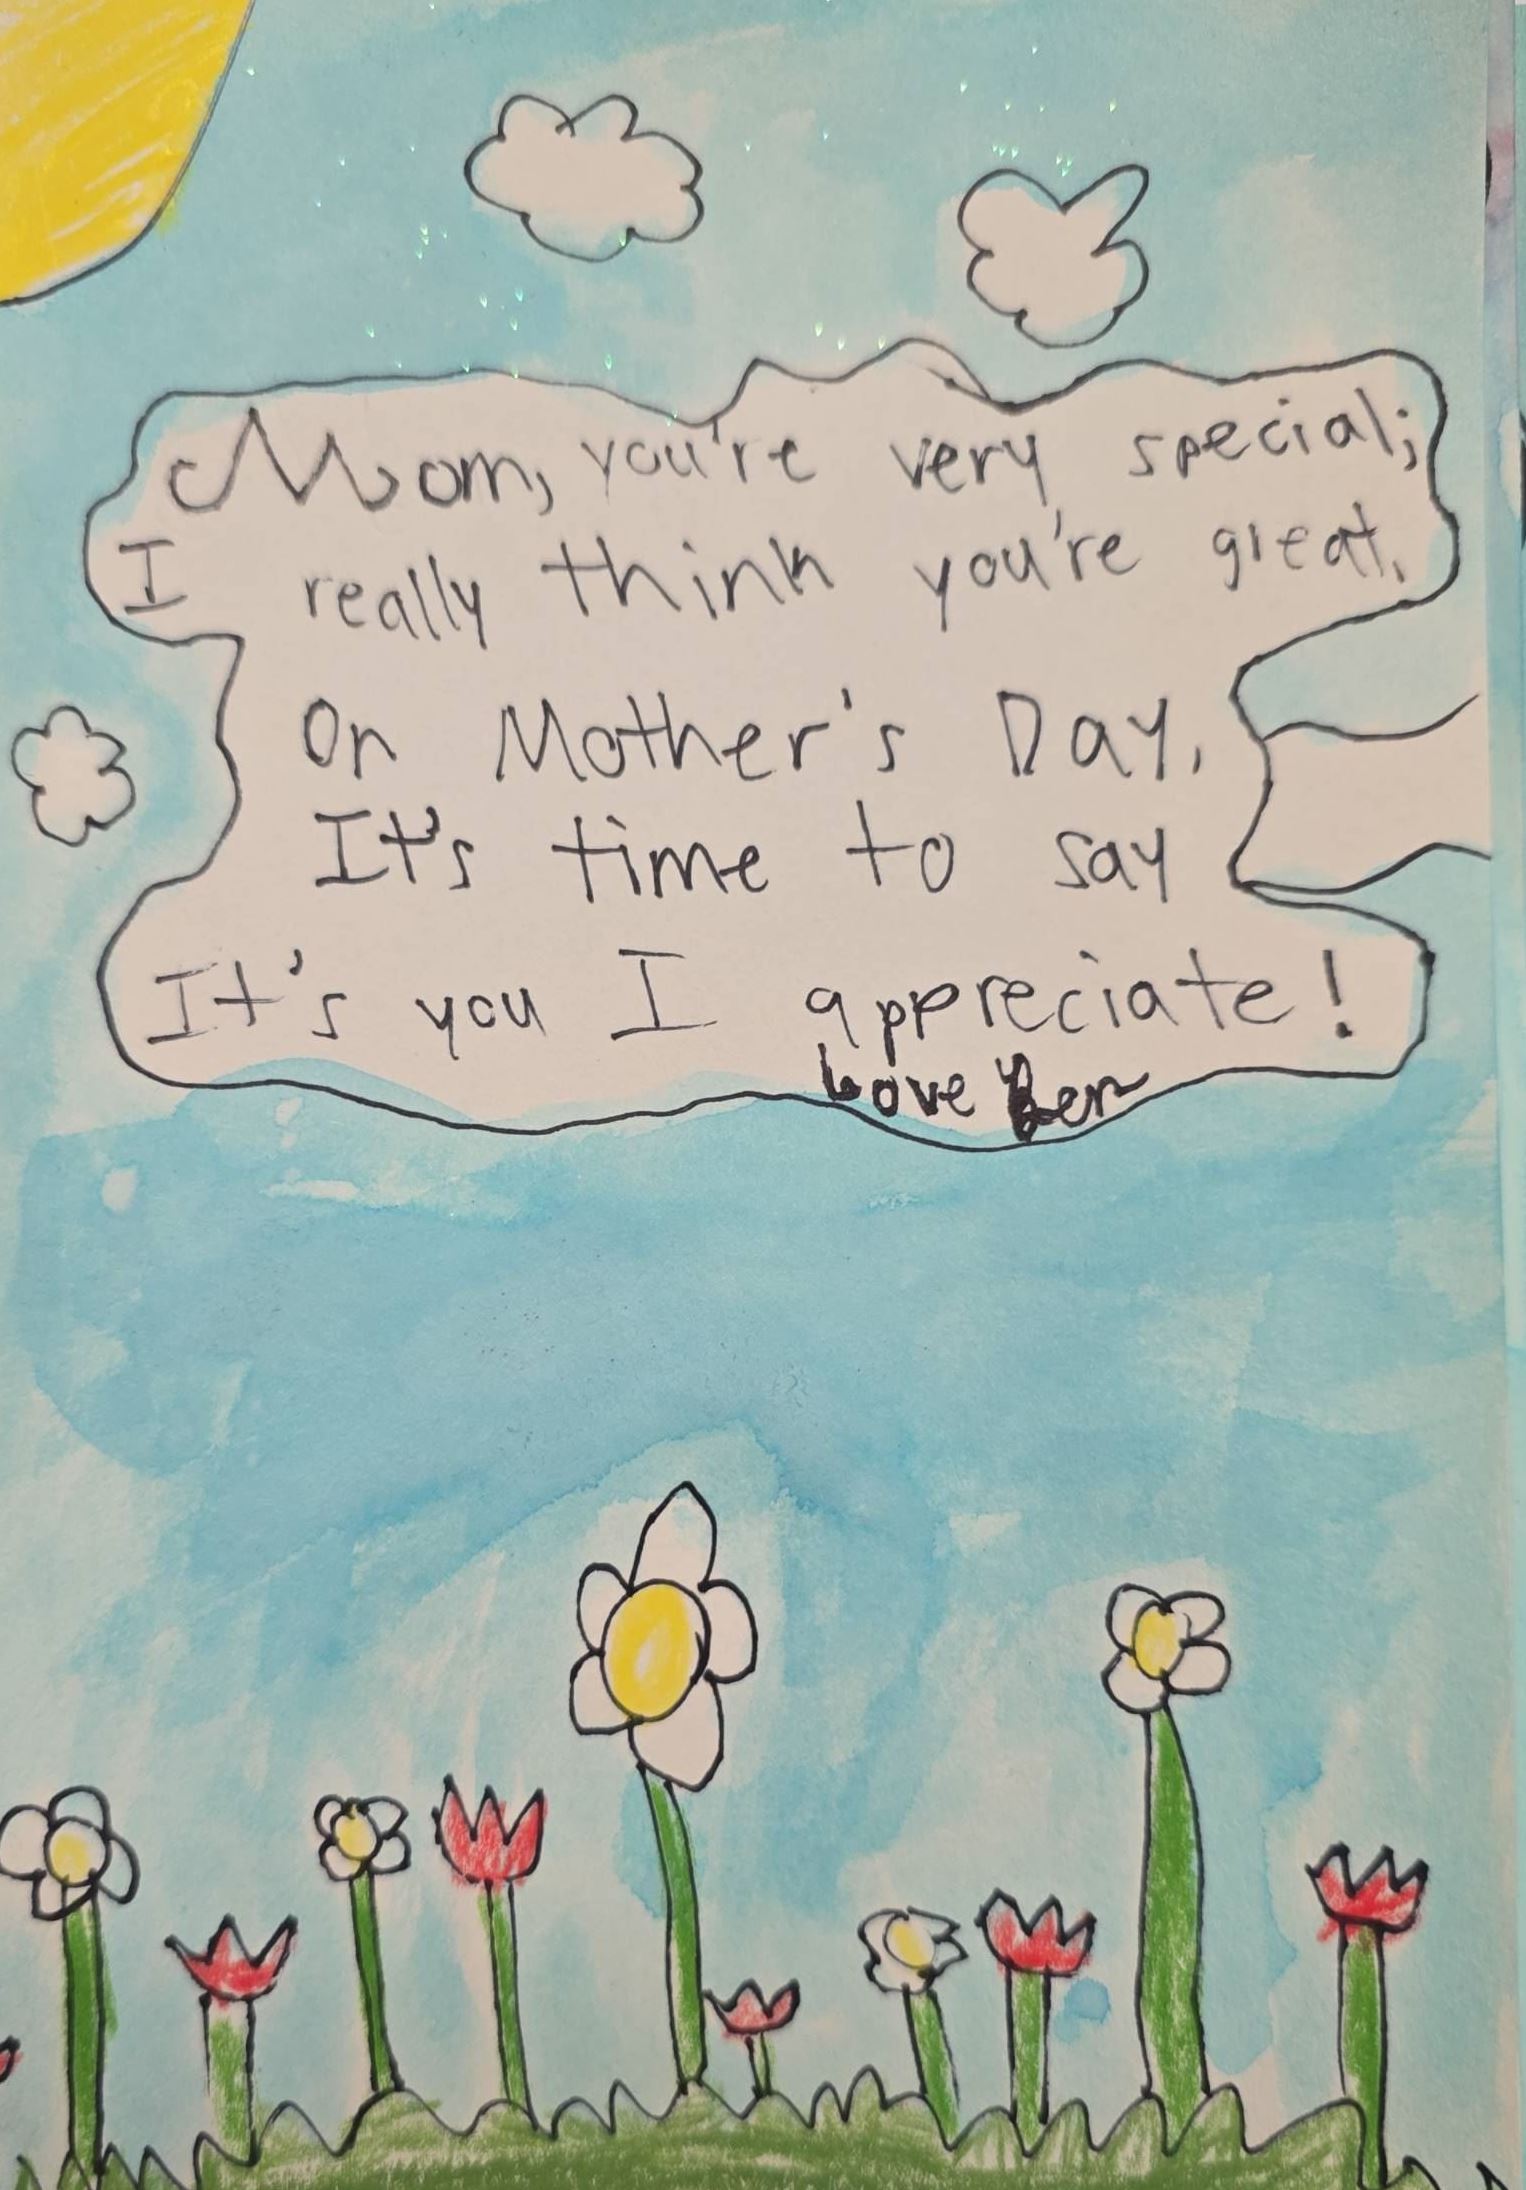 Mom, you're very special;
I really think you're great.
On Mother's Day,
It's time to say
It's you I appreciate!
Love Ben